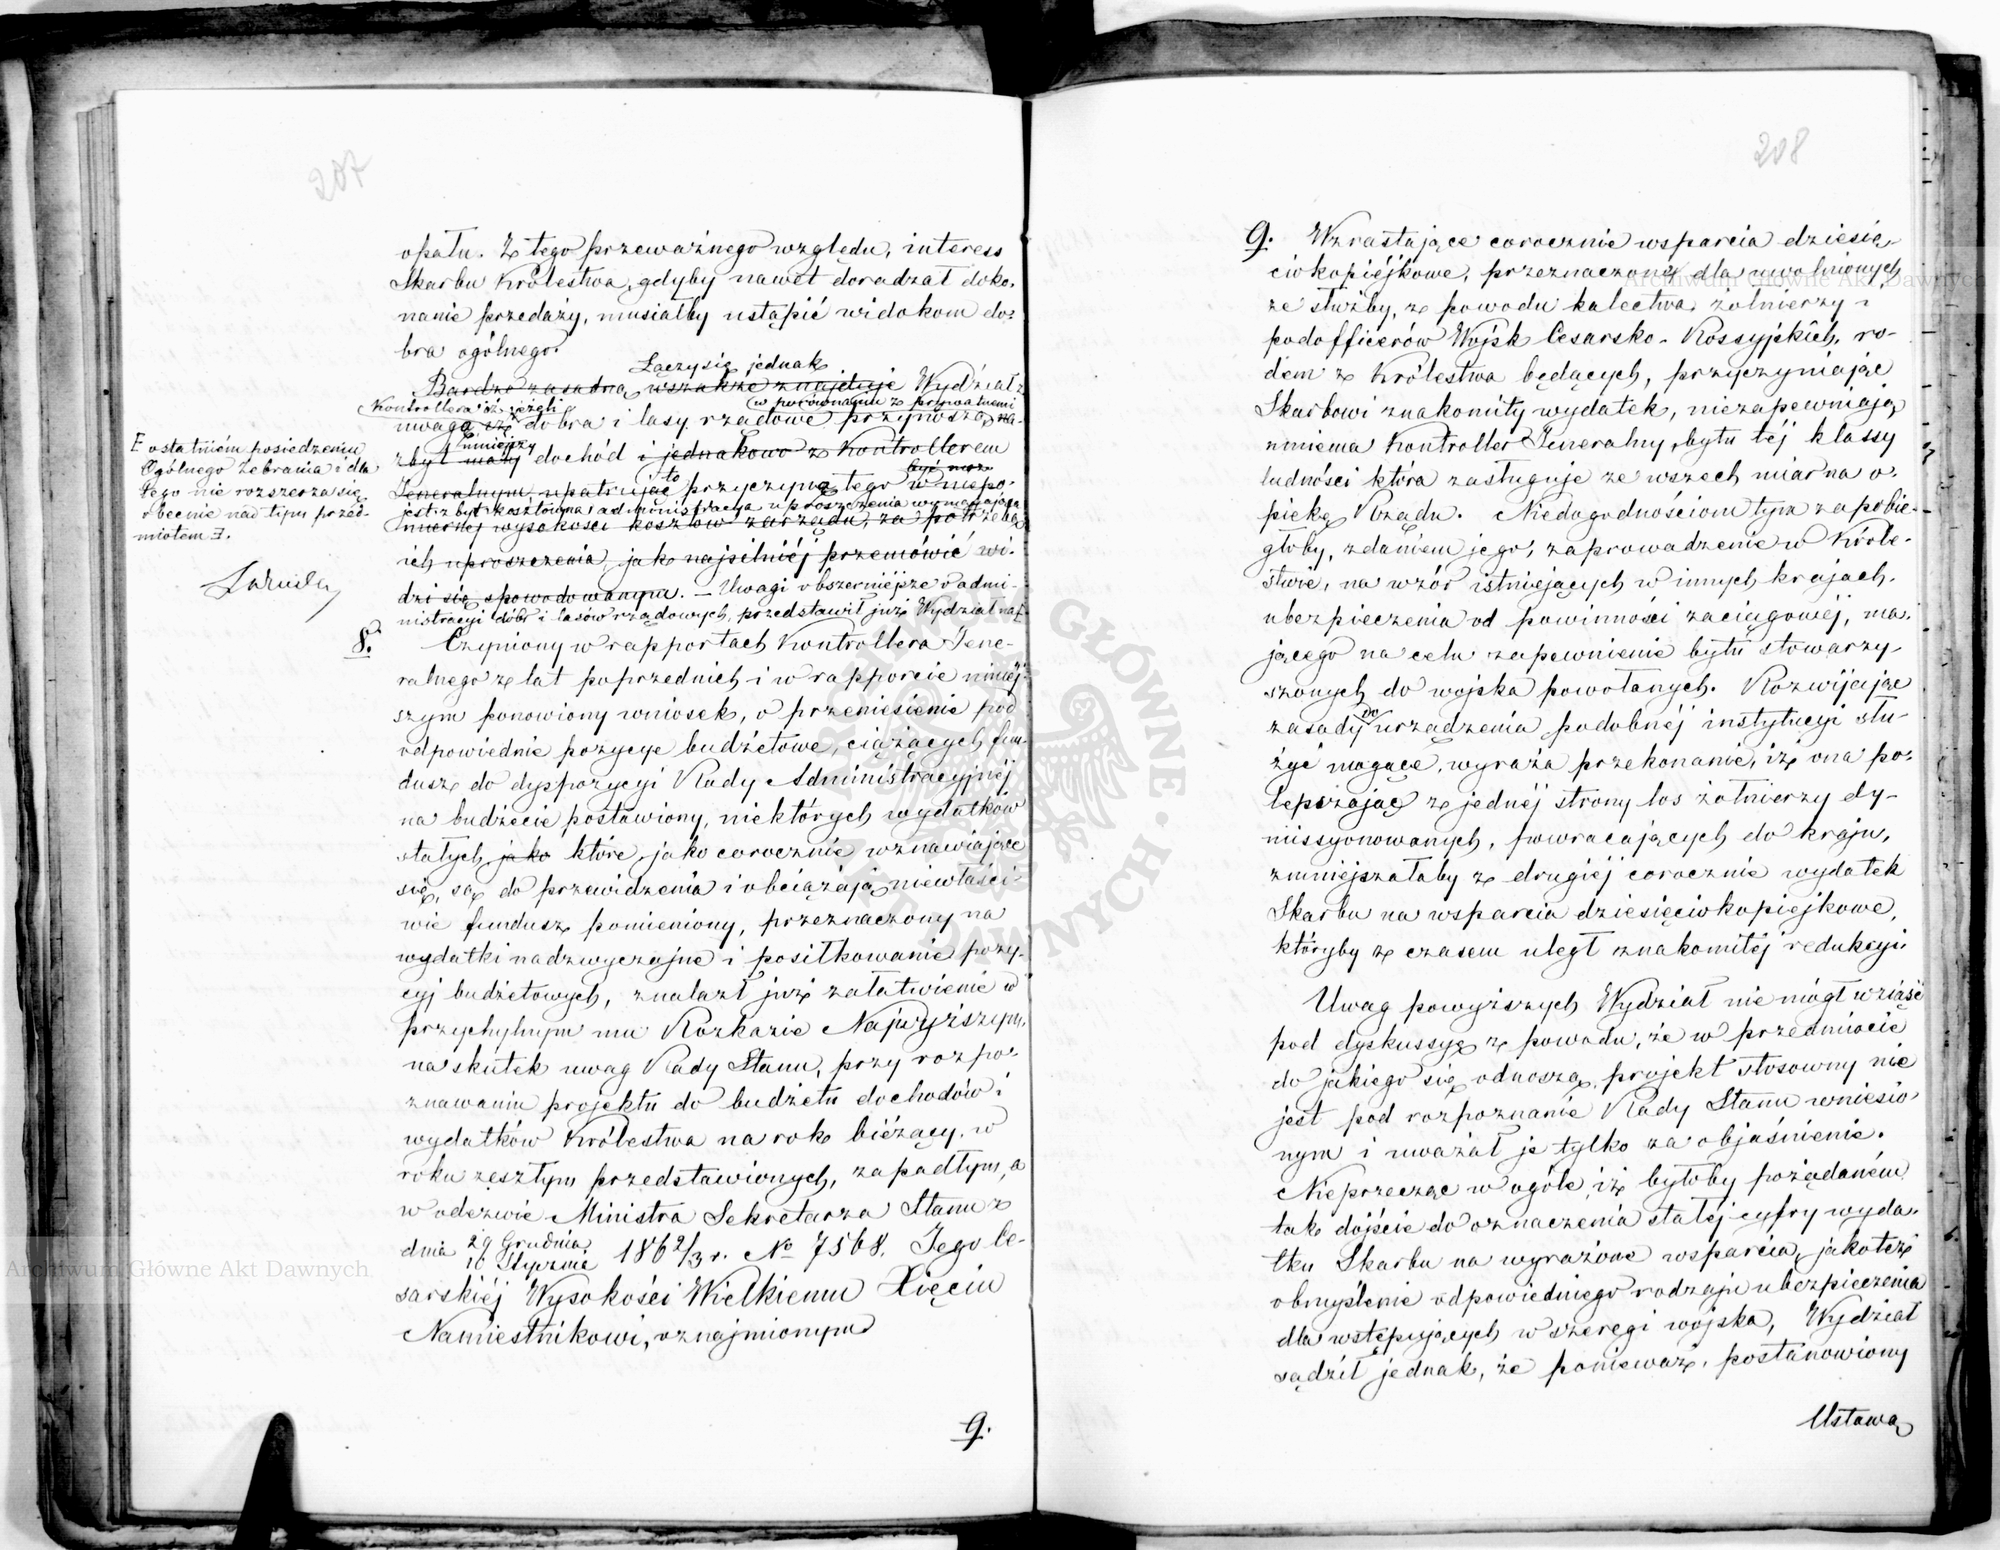 207
opału. Z tego przeważnego względu, interess
Skarbu Królestwa, gdyby nawet doradzał doko-
nanie przedaży, musiałby ustąpić widokom do-
bra ogólnego.
Łączy się jednak
Bardzo zasadną wszakże znajduje Wydział z
Kontrollera iż jeżeli w porównaniu z prywatnemi
uwagą iż dobra i lasy rządowe przynoszą na-
mniejszy
zbyt mały dochód i jednakowo z Kontrollerem
i to być może
Jeneralnym upatrując przyczyną tego w niepo-
jest zbyt kosztowna administracya uproszczenia wymagająca
miernej wysokości kosztów zarządu, za potrzebą
ich uproszczenia, jak najsilniéj przemówić wi-
dzi się spowodowanym. — Uwagi obszerniejsze o admi-
nistracyi dóbr i lasów rządowych, przedstawił już Wydział na E
E ostatniém posiedzeniu
Ogólnego Zebrania i dla
tego nie rozszerza się
obecnie nad tym przed-
miotem E.
8. Czyniony w rapportach Kontrollera Jene-
ralnego z lat poprzednich i w rapporcie niniéj-
szym ponowiony wniosek, o przeniesienie pod
odpowiednie pozycye budżetowe, ciążących fun-
dusz do dyspozycyi Rady Administracyjnéj
na budżecie postawiony, niektórych wydatków
stałych jako które, jako corocznie wznawiające
się, są do przewidzenia i obciążają niewłaści-
wie fundusz pomieniony, przeznaczony na
wydatki nadzwyczajne i posiłkowanie pozy-
cyj budżetowych, znalazł już załatwienie w
przychylnym mu Rozkazie Najwyższym,
na skutek uwag Rady Stanu, przy rozpo-
znawaniu projektu do budżetu dochodów i
wydatków Królestwa na rok bieżący, w
roku zeszłym przedstawionych, zapadłym, a
w odezwie Ministra Sekretarza Stanu z
dnia 29 Grudnia 10 Stycznia 1862/3 r. No 7568. Jego Ce-
sarskiéj Wysokości Wielkiemu Xięciu
Namiestnikowi, oznajmionym
9.
208
9. Wzrastające corocznie wsparcia dziesię-
ciokopiéjkowe, przeznaczone dla uwolnionych
ze służby, z powodu kalectwa żołnierzy i
podofficerów Wojsk Cesarsko-Rossyjskich, ro-
dem z Królestwa będących, przyczyniając
Skarbowi znakomity wydatek, niezapewniają
mniema Kontroller Jeneralny, bytu téj klassy
ludności która zasługuje ze wszech miar na o-
piekę Rządu. Niedogodnościom tym zapobie-
głoby, zdaniem jego, zaprowadzenie w Króle-
stwie, na wzór istniejących w innych krajach,
ubezpieczenia od powinności zaciągowéj, ma-
jącego na celu zapewnienie bytu stowarzy-
szonych do wojska powołanych. Rozwijając
zasady do urządzenia podobnéj instytucyi słu-
żyć mogące, wyraża przekonanie, iż ona po-
lepszając z jednéj strony los żołnierzy dy-
missyonowanych, powracających do kraju,
zmniejszałaby z drugiéj corocznie wydatek
Skarbu na wsparcia dziesięciokopiejkowe,
któryby z czasem uległ znakomitéj redukcyi.
Uwag powyższych Wydział nie mógł wziąść
pod dyskussyę z powodu, że w przedmiocie
do jakiego się odnoszą, projekt stosowny nie
jest pod rozpoznanie Rady Stanu wniesio-
nym i uważał je tylko za objaśnienie.
Nieprzecząc w ogóle, iż byłoby pożądaném
tak dojście do oznaczenia stałéj cyfry wyda-
tku Skarbu na wyrażone wsparcia, jakotéż
obmyślenie odpowiedniego rodzaju ubezpieczenia
dla wstępujących w szeregi wojska, Wydział
sądził jednak, że ponieważ, postanowiony
Ustawą
Archiwum Główne Akt Dawnych
Archiwum Główne Akt Dawnych
ARCHIWUM GŁÓWNE AKT DAWNYCH